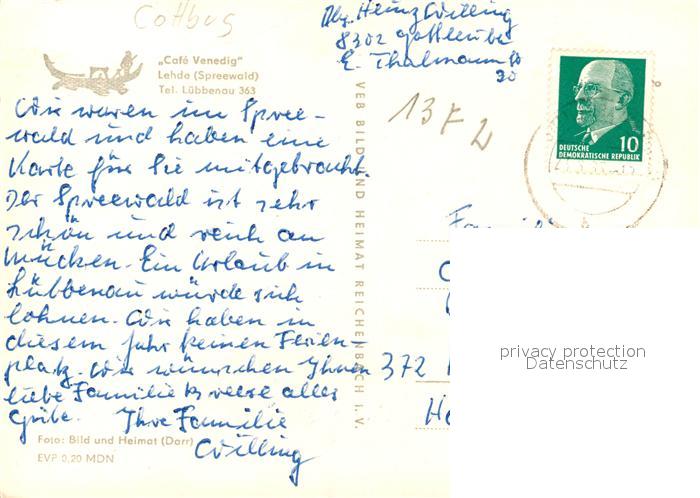 Cottbus
Abs. Heinz Willing
8302 Gottleuba
E. Thälmann
30
„Café Venedig"
Lehde (Spreewald)
Tel. Lübbenau 363
10
DEUTSCHE
DEMOKRATISCHE REPUBLIK
137 2
Wir waren im Spree-
wald und haben eine
Karte für Sie mitgebracht.
Der Spreewald ist sehr
schön und reich an
Mücken. Ein Urlaub in
Lübbenau würde sich
lohnen. Wir haben in
diesem Jahr keinen Ferien-
platz. Wir wünschen Ihnen
liebe Familie alles
Gute. Ihre Familie
Willing
VEB BILD UND HEIMAT REICHENBACH I. V.
372
privacy protection
Datenschutz
Foto: Bild und Heimat (Darr)
EVP 0,20 MDN